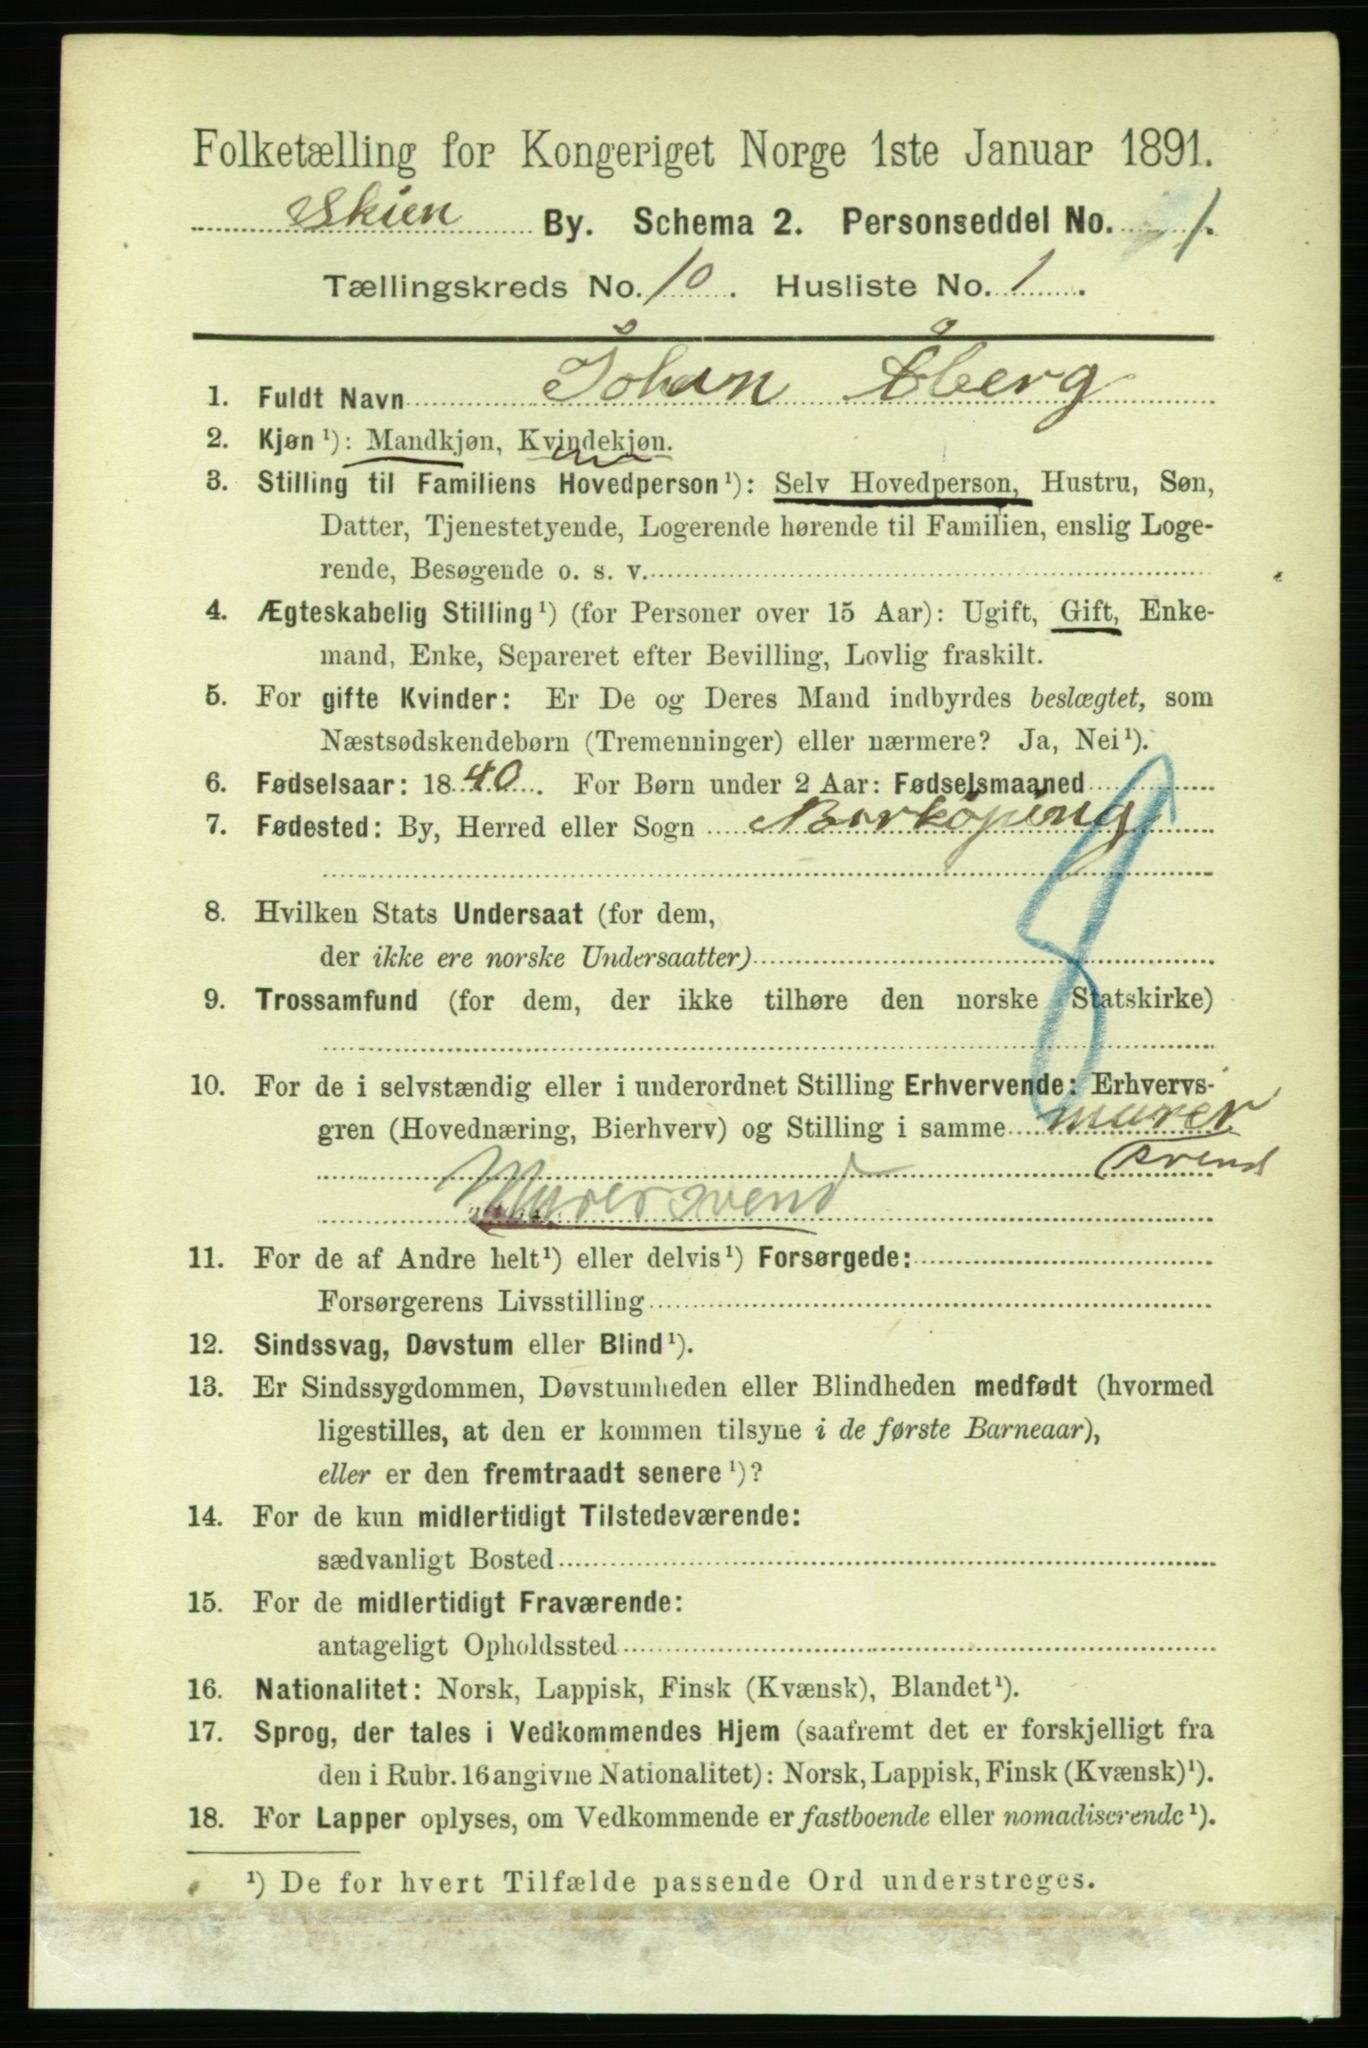 Folketælling for Kongeriget Norge 1ste Januar 1891.
Skien By. Schema 2. Personseddel No. 1.
Tællingskreds No. 10. Husliste No. 1.
1. Fuldt Navn Johan Åberg
2. Kjøn ¹): Mandkjøn, Kvindekjøn.
3. Stilling til Familiens Hovedperson ¹): Selv Hovedperson, Hustru, Søn,
Datter, Tjenestetyende, Logerende hørende til Familien, enslig Loge-
rende, Besøgende o. s. v.
4. Ægteskabelig Stilling ¹) (for Personer over 15 Aar): Ugift, Gift, Enke-
mand, Enke, Separeret efter Bevilling, Lovlig fraskilt.
5. For gifte Kvinder: Er De og Deres Mand indbyrdes beslægtet, som
Næstsødskendebørn (Tremenninger) eller nærmere? Ja, Nei ¹).
6. Fødselsaar: 1840. For Børn under 2 Aar: Fødselsmaaned
7. Fødested: By, Herred eller Sogn Norköping
8. Hvilken Stats Undersaat (for dem,
der ikke ere norske Undersaatter)
9. Trossamfund (for dem, der ikke tilhøre den norske Statskirke)
10. For de i selvstændig eller i underordnet Stilling Erhvervende: Erhvervs-
gren (Hovednæring, Bierhverv) og Stilling i samme murer
svend
Murersvend
11. For de af Andre helt ¹) eller delvis ¹) Forsørgede:
Forsørgerens Livsstilling
12. Sindssvag, Døvstum eller Blind ¹).
13. Er Sindssygdommen, Døvstumheden eller Blindheden medfødt (hvormed
ligestilles, at den er kommen tilsyne i de første Barneaar),
eller er den fremtraadt senere ¹)?
14. For de kun midlertidigt Tilstedeværende:
sædvanligt Bosted
15. For de midlertidigt Fraværende:
antageligt Opholdssted
16. Nationalitet: Norsk, Lappisk, Finsk (Kvænsk), Blandet ¹).
17. Sprog, der tales i Vedkommendes Hjem (saafremt det er forskjelligt fra
den i Rubr. 16 angivne Nationalitet): Norsk, Lappisk, Finsk (Kvænsk) ¹).
18. For Lapper oplyses, om Vedkommende er fastboende eller nomadiserende ¹).
¹) De for hvert Tilfælde passende Ord understreges.